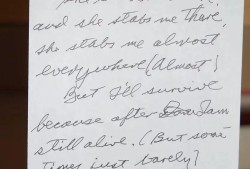 and she stabs me there,
she stabs me almost
everywhere (Almost)
But I'll survive
because after I am
still alive. (But some
times just barely)